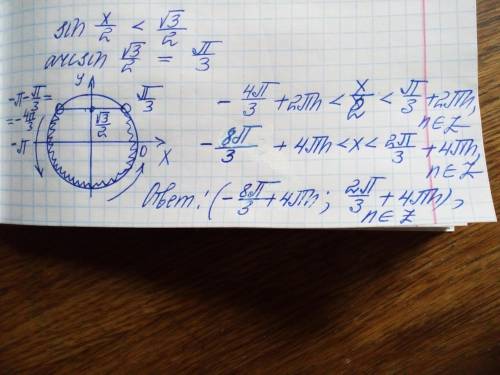 sin x/2 < √3/2
arcsin √3/2 = π/3
y
-π - π/3 =
= -4π/3
-π
π/3
√3/2
0
x
-4π/3 + 2πn < x/2 < π/3 + 2πn,
n∈Z
-8π/3 + 4πn < x < 2π/3 + 4πn,
n∈Z
Ответ: (-8π/3 + 4πn; 2π/3 + 4πn),
n∈Z